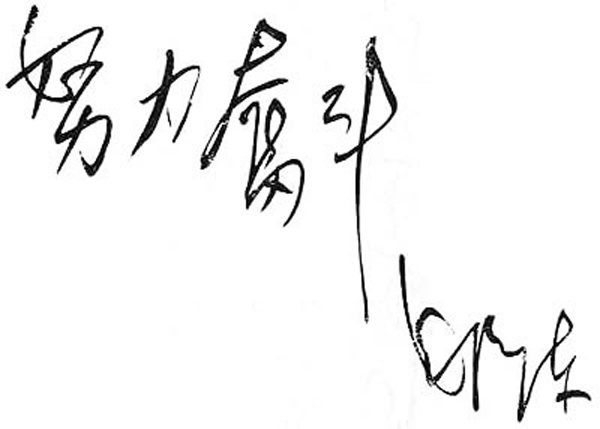 努力奋斗